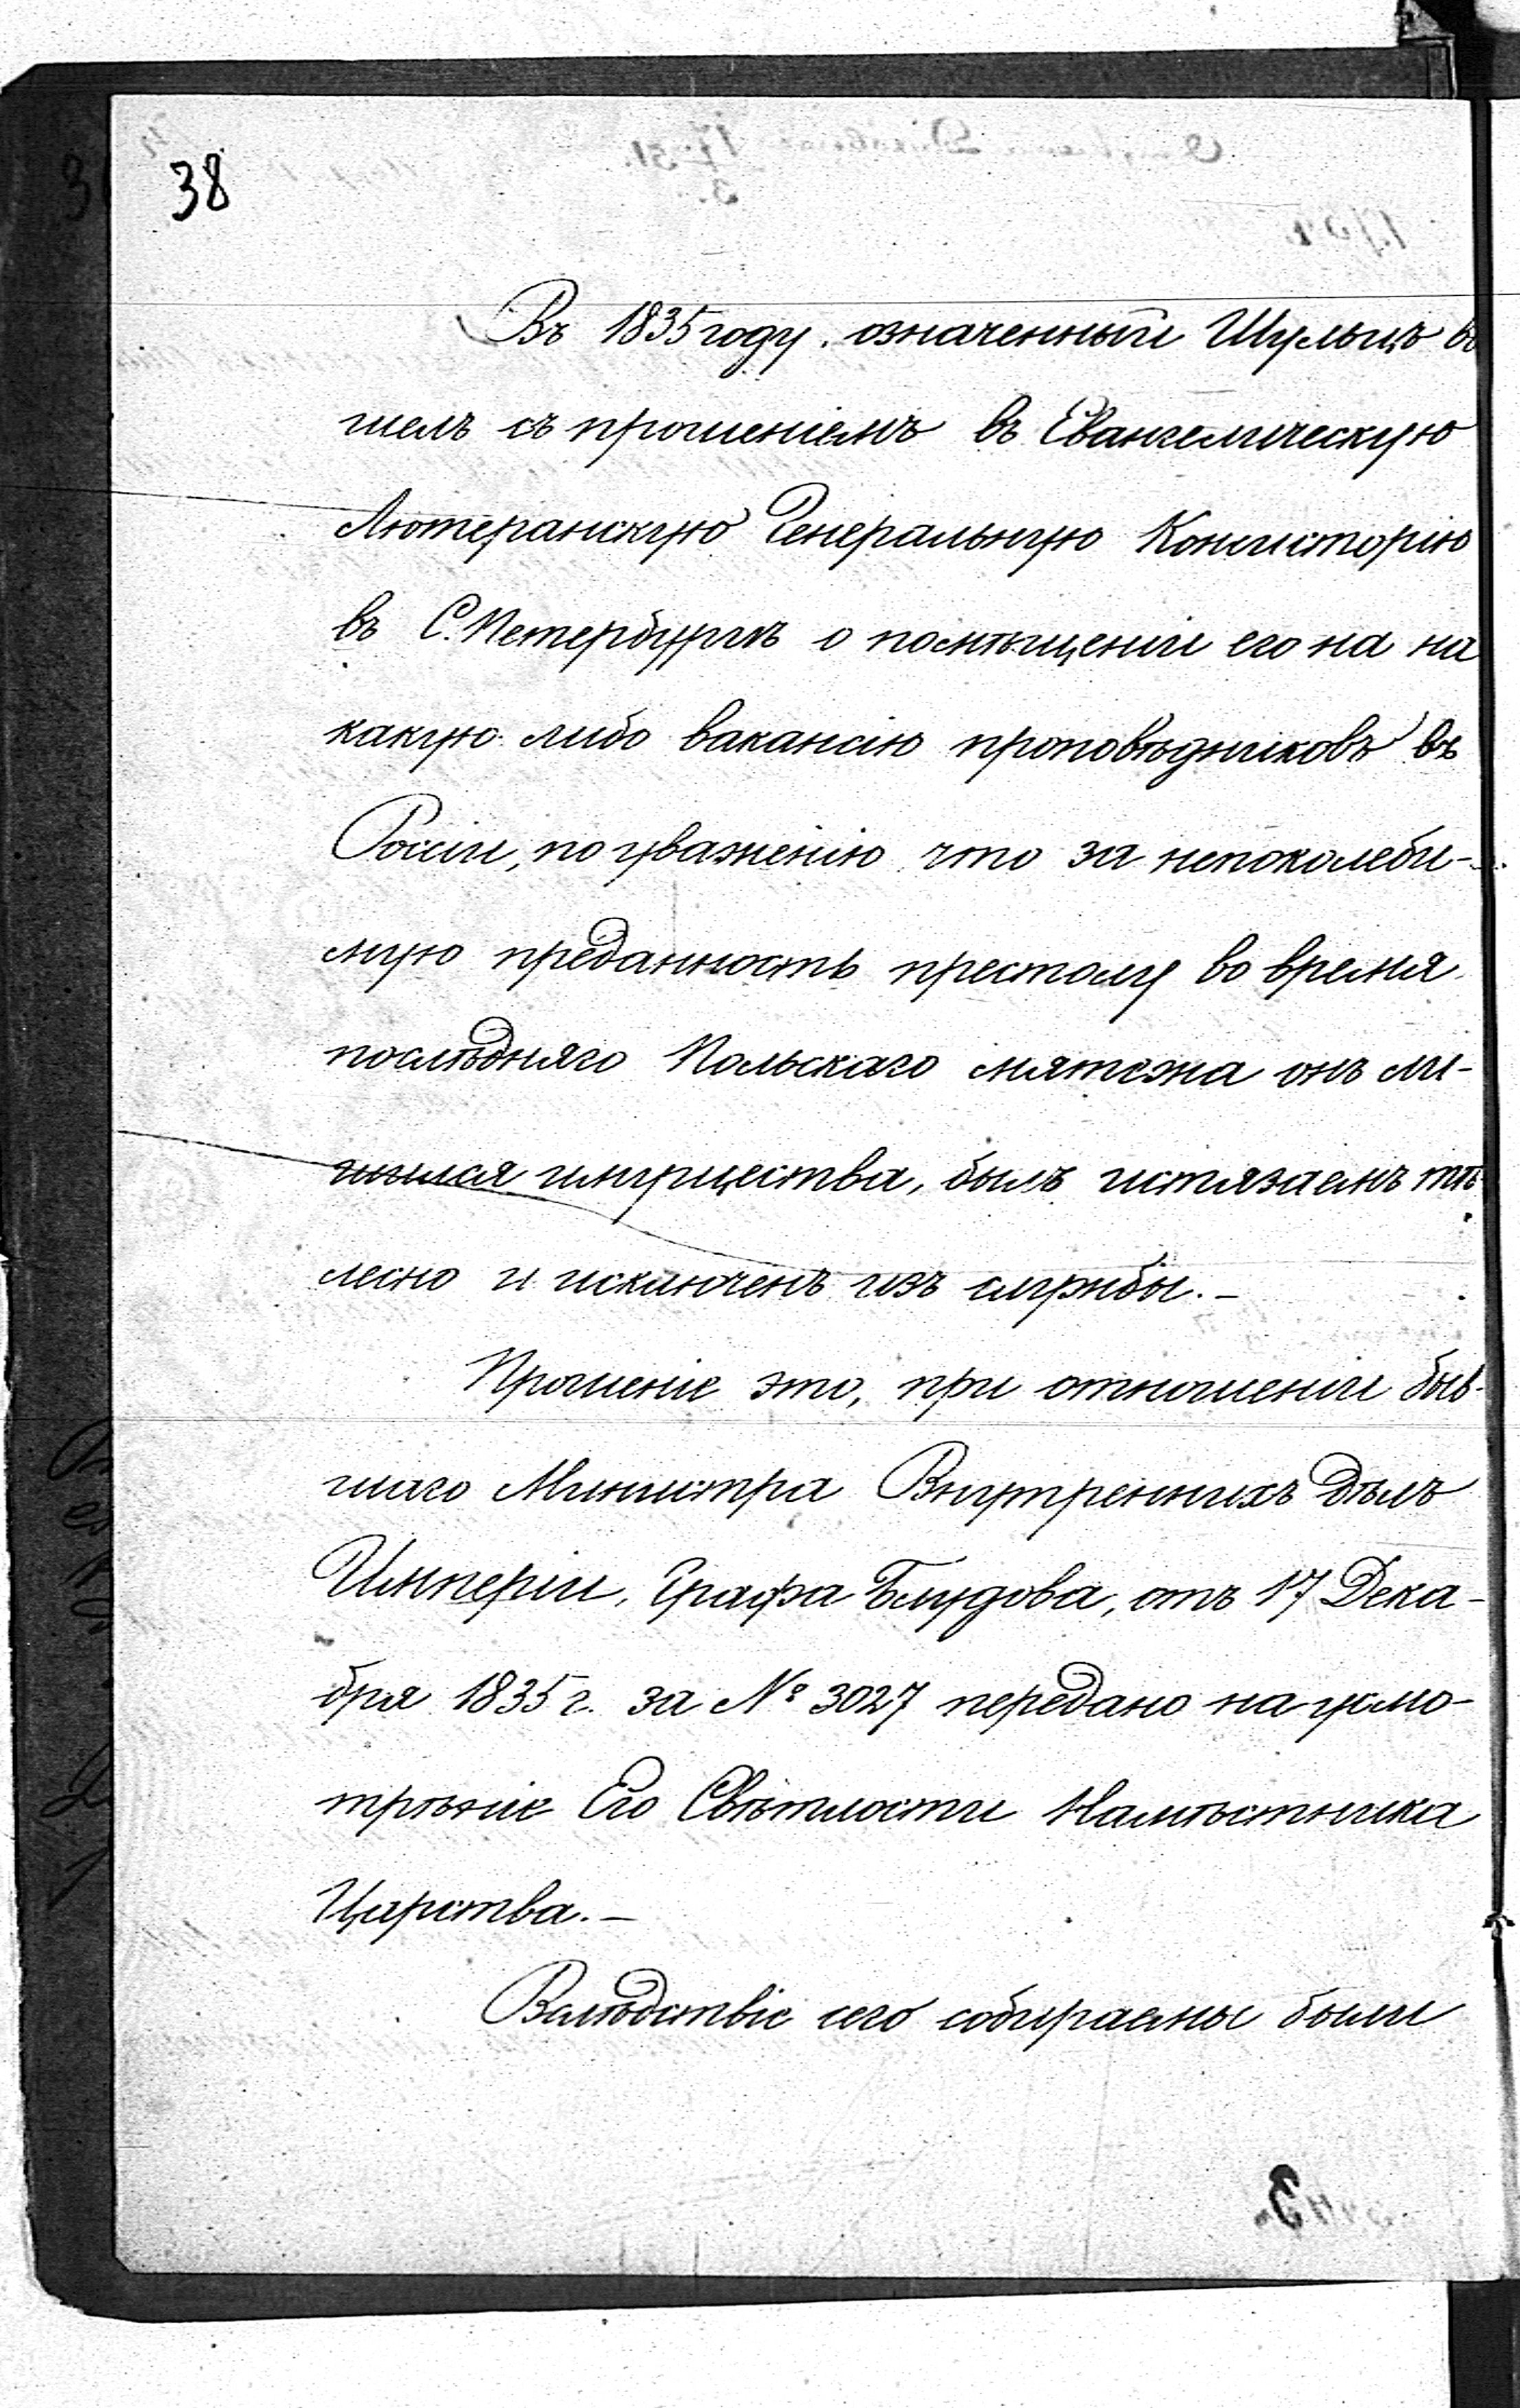 38
Въ 1835 году, означенный Шульцъ во
шелъ съ прошеніемъ въ Евангелическую
Лютеранскую Генеральную Консисторію
въ С. Петербургѣ о помѣщеніи его на на
какую либо вакансію проповѣдниковъ въ
Россіи, по уваженію что за непоколеби-
мую преданность престолу во время
послѣдняго Польскаго мятежа онъ ли-
шился имущества, былъ истязаемъ тѣ
лесно и исключенъ изъ службы.-
Прошеніе это, при отношеніи быв-
шаго Министра Внутреннихъ Дѣлъ
Имперіи, Графа Блудова, отъ 17 Дека-
бря 1835 г. за № 3027 передано на усмо-
трѣніе Его Свѣтлости Намѣстника
Царства.-
Вслѣдствіе сего собираемы были